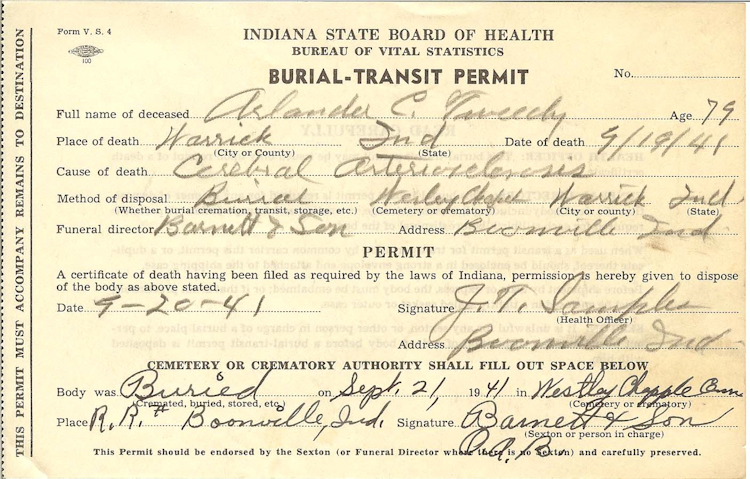 Form V. S. 4
100
INDIANA STATE BOARD OF HEALTH
BUREAU OF VITAL STATISTICS
BURIAL-TRANSIT PERMIT
No.
Full name of deceased Arlander C. Tweedy Age 79
Place of death Warrick Ind Date of death 9/19/41
(City or County) (State)
Cause of death Cerebral Arteriosclerosis
Method of disposal Burial Wesley Chapel Warrick Ind
(Whether burial cremation, transit, storage, etc.) (Cemetery or crematory) (City or county) (State)
Funeral director Barnett & Son Address Boonville Ind
PERMIT
A certificate of death having been filed as required by the laws of Indiana, permission is hereby given to dispose
of the body as above stated.
Date 9-20-41 Signature J. T. Samples
(Health Officer)
Address Boonville Ind
CEMETERY OR CREMATORY AUTHORITY SHALL FILL OUT SPACE BELOW
Body was Buried on Sept. 21, 1941 in Westley Chapple Cem
(Cremated, buried, stored, etc.) (Cemetery or crematory)
Place R. R. # Boonville, Ind. Signature Barnett & Son
(Sexton or person in charge)
This Permit should be endorsed by the Sexton (or Funeral Director where there is no Sexton) and carefully preserved.
THIS PERMIT MUST ACCOMPANY REMAINS TO DESTINATION